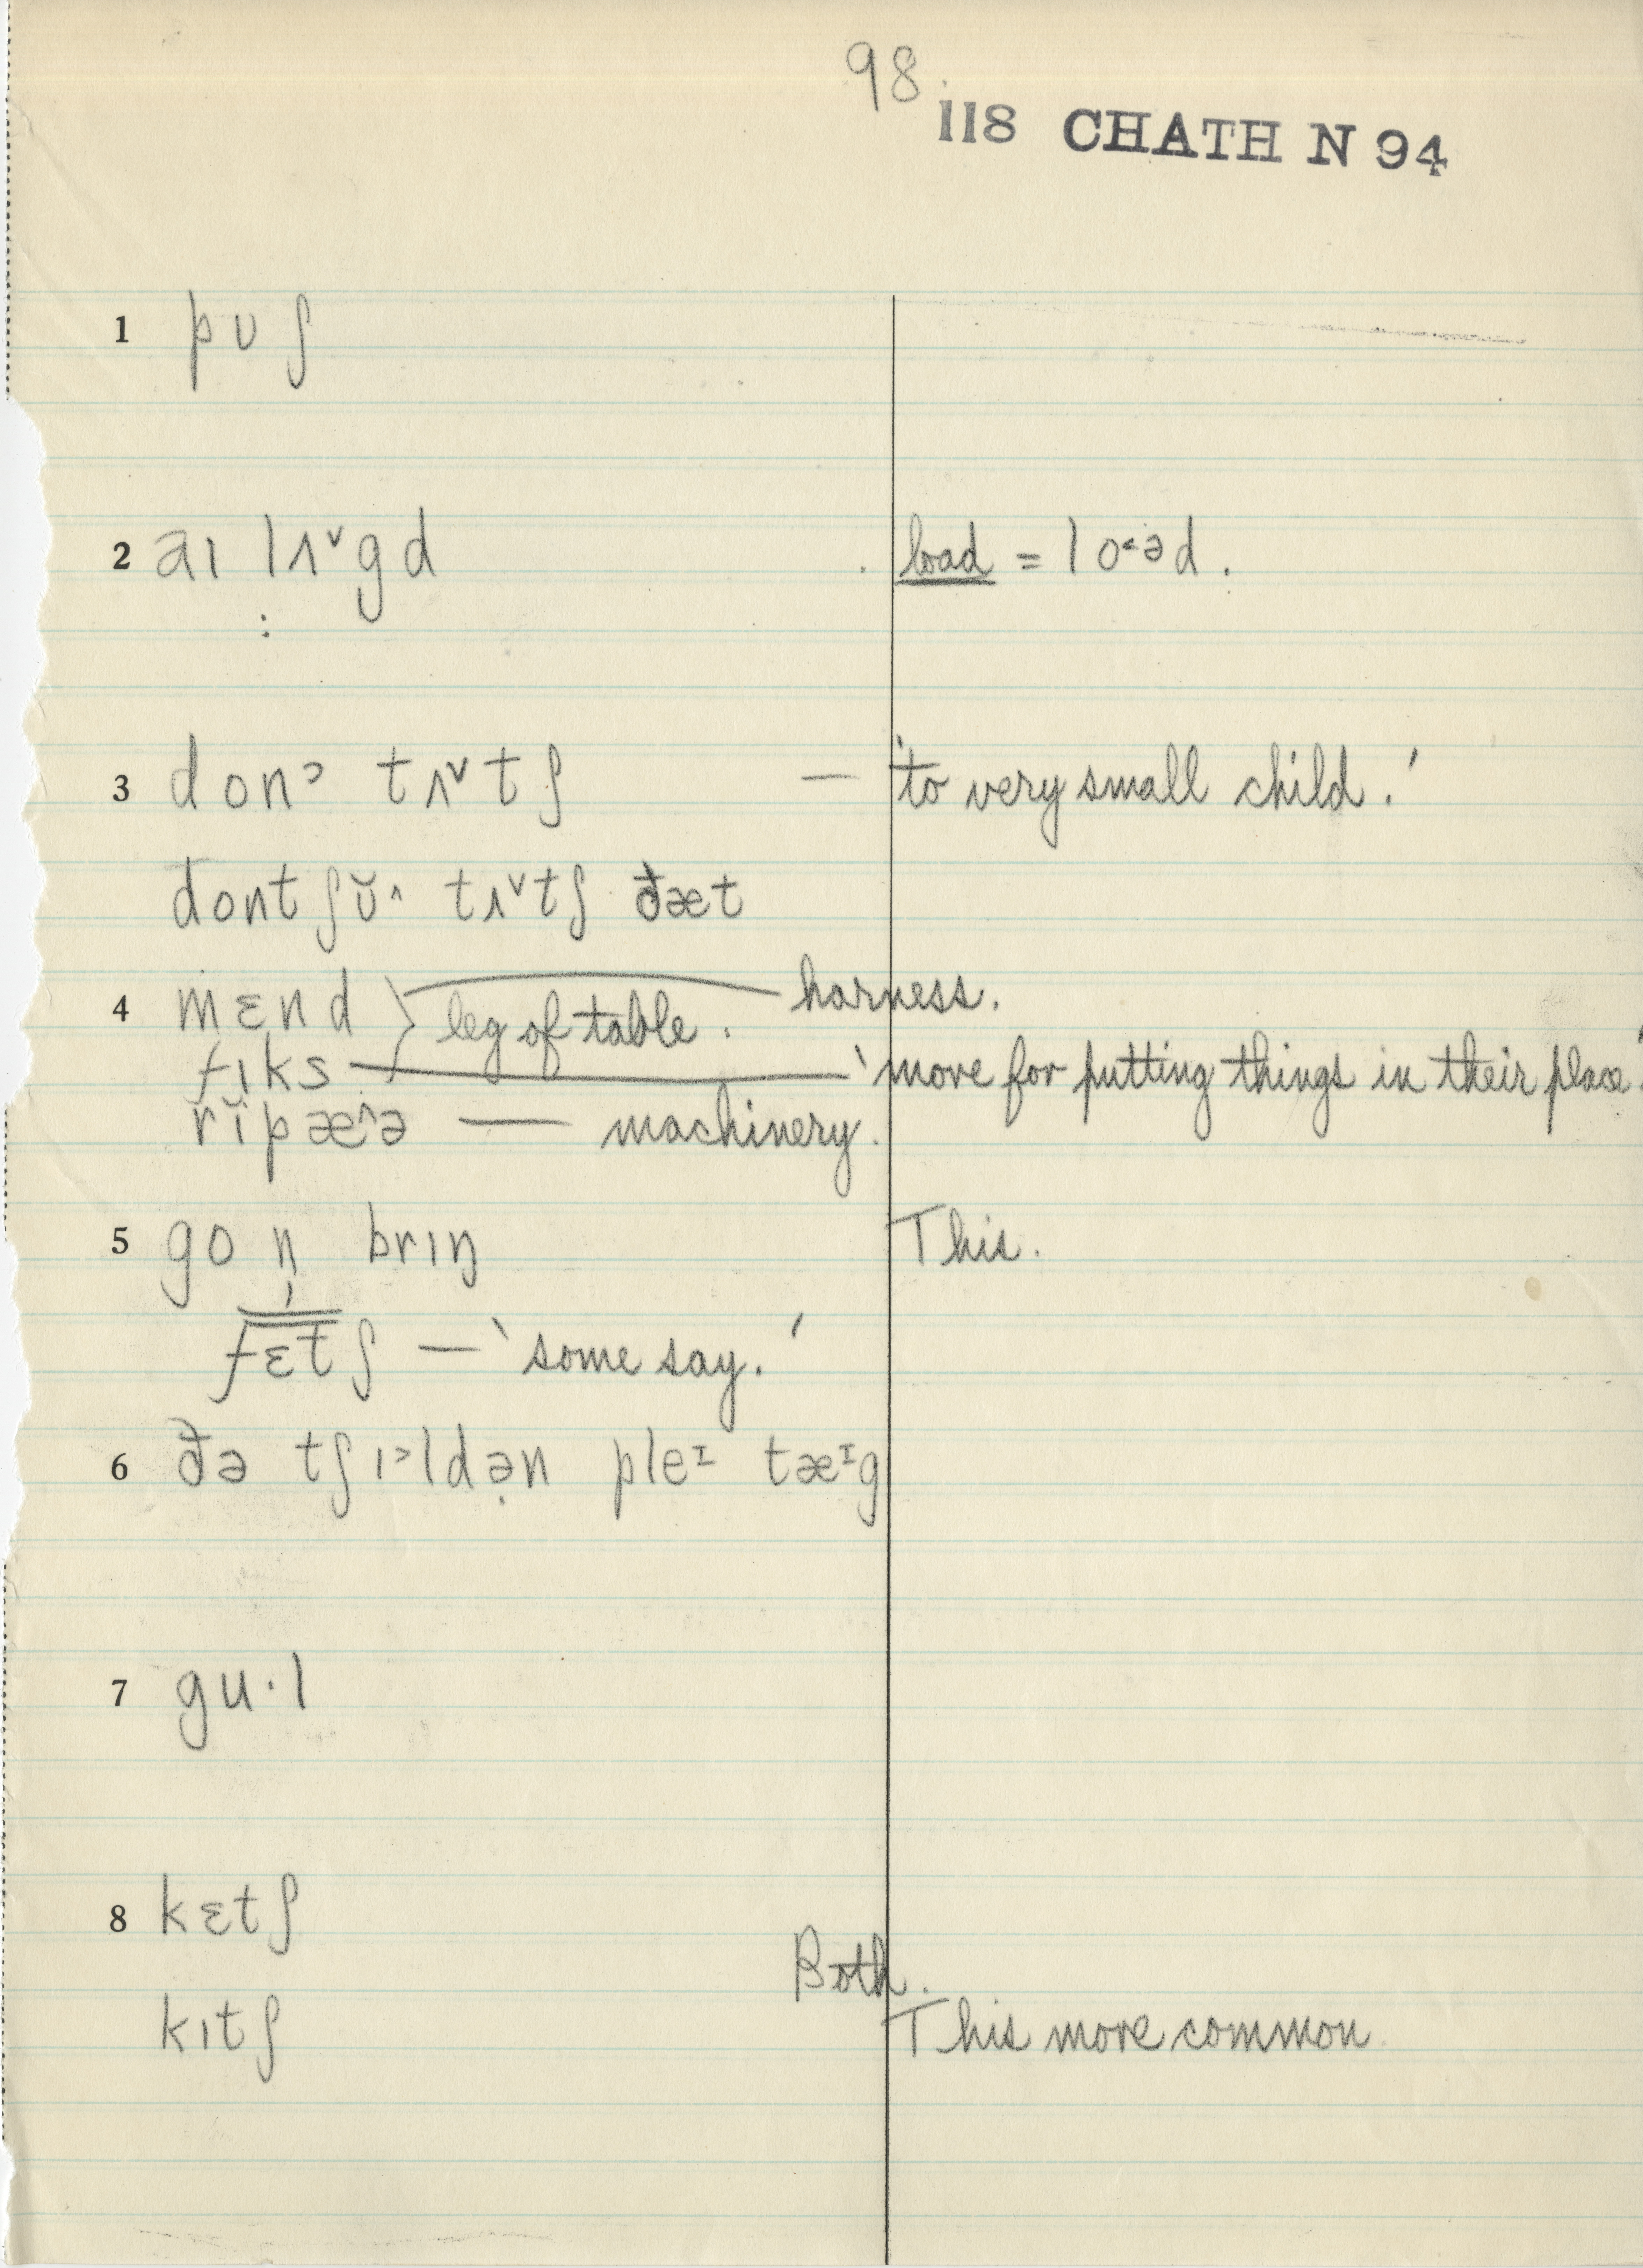 98.
118 CHATH N 94
1 pʊʃ
2 aɪ lʌ˅gd load = lo˂əd.
3 don˃ tʌ˅tʃ — 'to very small child.'
dontʃʊ̆˄ tʌ˅tʃ ðæt
4 mɛnd } leg of table. harness.
fɪks — 'move for putting things in their place.'
rĭpæ˄ə — machinery.
5 go n̩ brɪŋ This.
fɛtʃ — 'some say.'
6 ðə tʃɪ˃ldə̣n pleᶦ tæᶦg
7 gu·l
8 kɛtʃ
Both.
kɪtʃ This more common